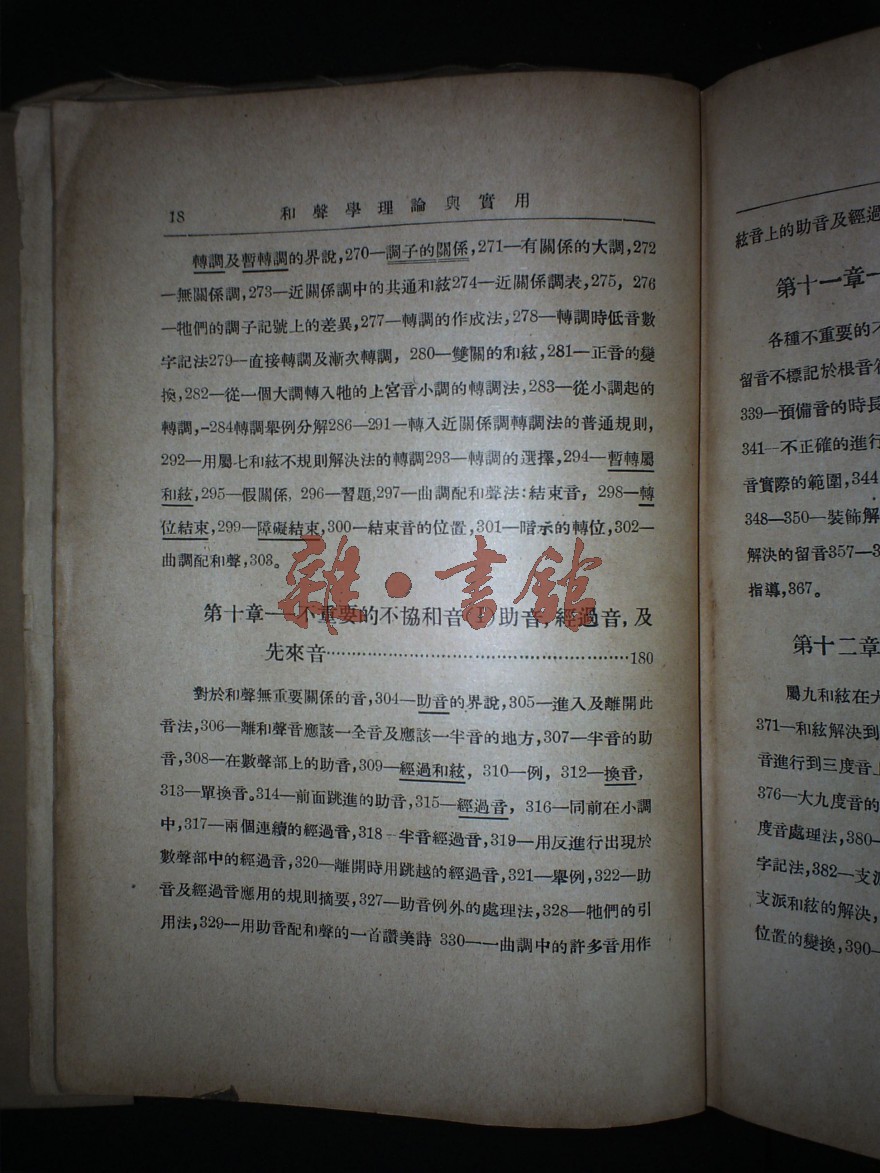 18 和聲學理論與實用
轉調及暫轉調的界說,270—調子的關係,271—有關係的大調,272
—無關係調,273—近關係調中的共通和絃274—近關係調表,275, 276
—牠們的調子記號上的差異,277—轉調的作成法,278—轉調時低音數
字記法279—直接轉調及漸次轉調, 280—雙關的和絃,281—正音的變
換,282—從一個大調轉入牠的上宮音小調的轉調法,283—從小調起的
轉調,-284轉調舉例分解286—291—轉入近關係調轉調法的普通規則,
292—用屬七和絃不規則解決法的轉調293—轉調的選擇,294—暫轉屬
和絃,295—假關係, 296—習題,297—曲調配和聲法:結束音, 298—轉
位結束,299—障礙結束,300—結束音的位置,301—暗示的轉位,302—
曲調配和聲,303。
第十章——不重要的不協和音(1)助音,經過音,及
先來音…………………………………………180
對於和聲無重要關係的音,304—助音的界說,305—進入及離開此
音法,306—離和聲音應該一全音及應該一半音的地方,307—半音的助
音,308—在數聲部上的助音,309—經過和絃, 310—例, 312—換音,
313—單換音。314—前面跳進的助音,315—經過音, 316—同前在小調
中,317—兩個連續的經過音,318—半音經過音,319—用反進行出現於
數聲部中的經過音,320—離開時用跳越的經過音,321—舉例,322—助
音及經過音應用的規則摘要,327—助音例外的處理法,328—牠們的引
用法,329—用助音配和聲的一首讚美詩 330—一曲調中的許多音用作
絃音上的助音及經過
第十一章—
各種不重要的不
留音不標記於根音
339—預備音的時長
341—不正確的進行
音實際的範圍,344
348—350—裝飾解
解決的留音357—3
指導,367。
第十二章
屬九和絃在大
371—和絃解決到
音進行到三度音上
376—大九度音的
度音處理法,380—
字記法,382—支派
支派和絃的解決,
位置的變換,390—
雜·書館